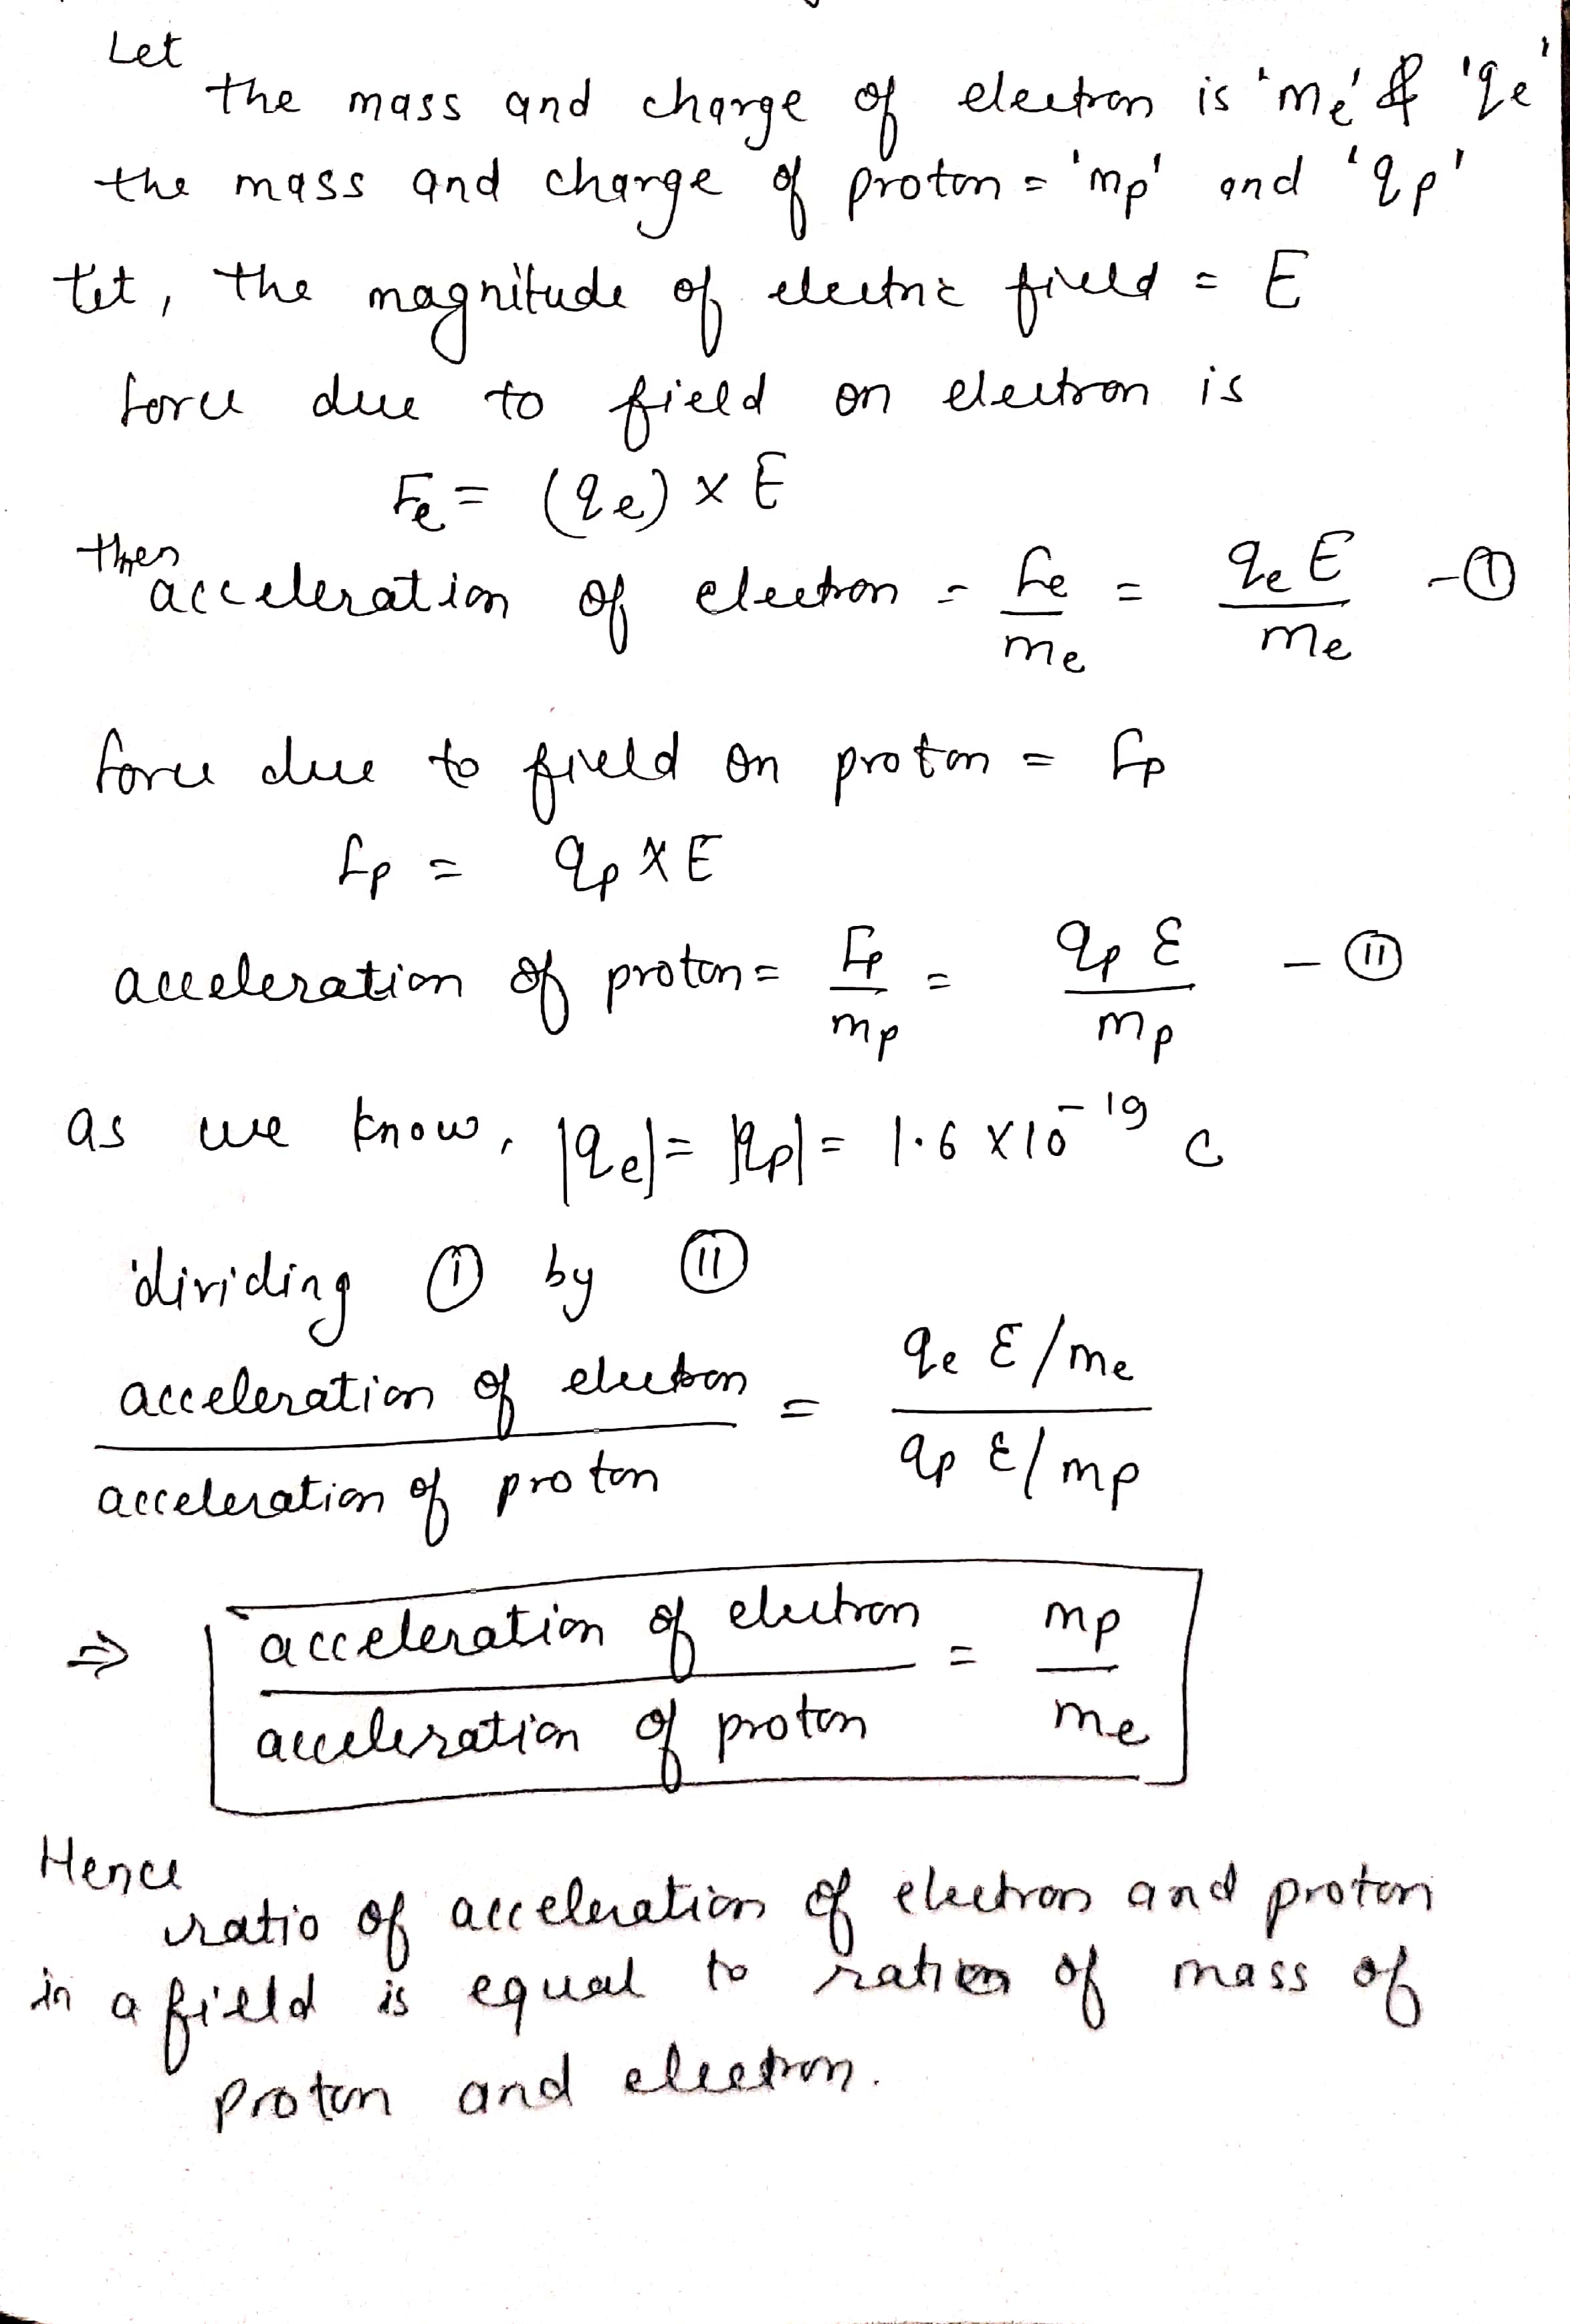 Let
the mass and charge of electron is 'me' & 'qe'
the mass and charge of proton = 'mp' and 'qp'
Let, the magnitude of electric field = E
force due to field on electron is
Fe = (qe) × E
then
acceleration of electron = Fe/me = qeE/me - (I)
force due to field on proton = Fp
Fp = qp × E
acceleration of proton = Fp/mp = qp E/mp - (II)
as we know, |qe| = |qp| = 1.6 × 10⁻¹⁹ C
dividing (I) by (II)
acceleration of electron / acceleration of proton = qe E/me / qp E/mp
⇒ acceleration of electron / acceleration of proton = mp/me
Hence
ratio of acceleration of electron and proton
in a field is equal to ration of mass of
proton and electron.